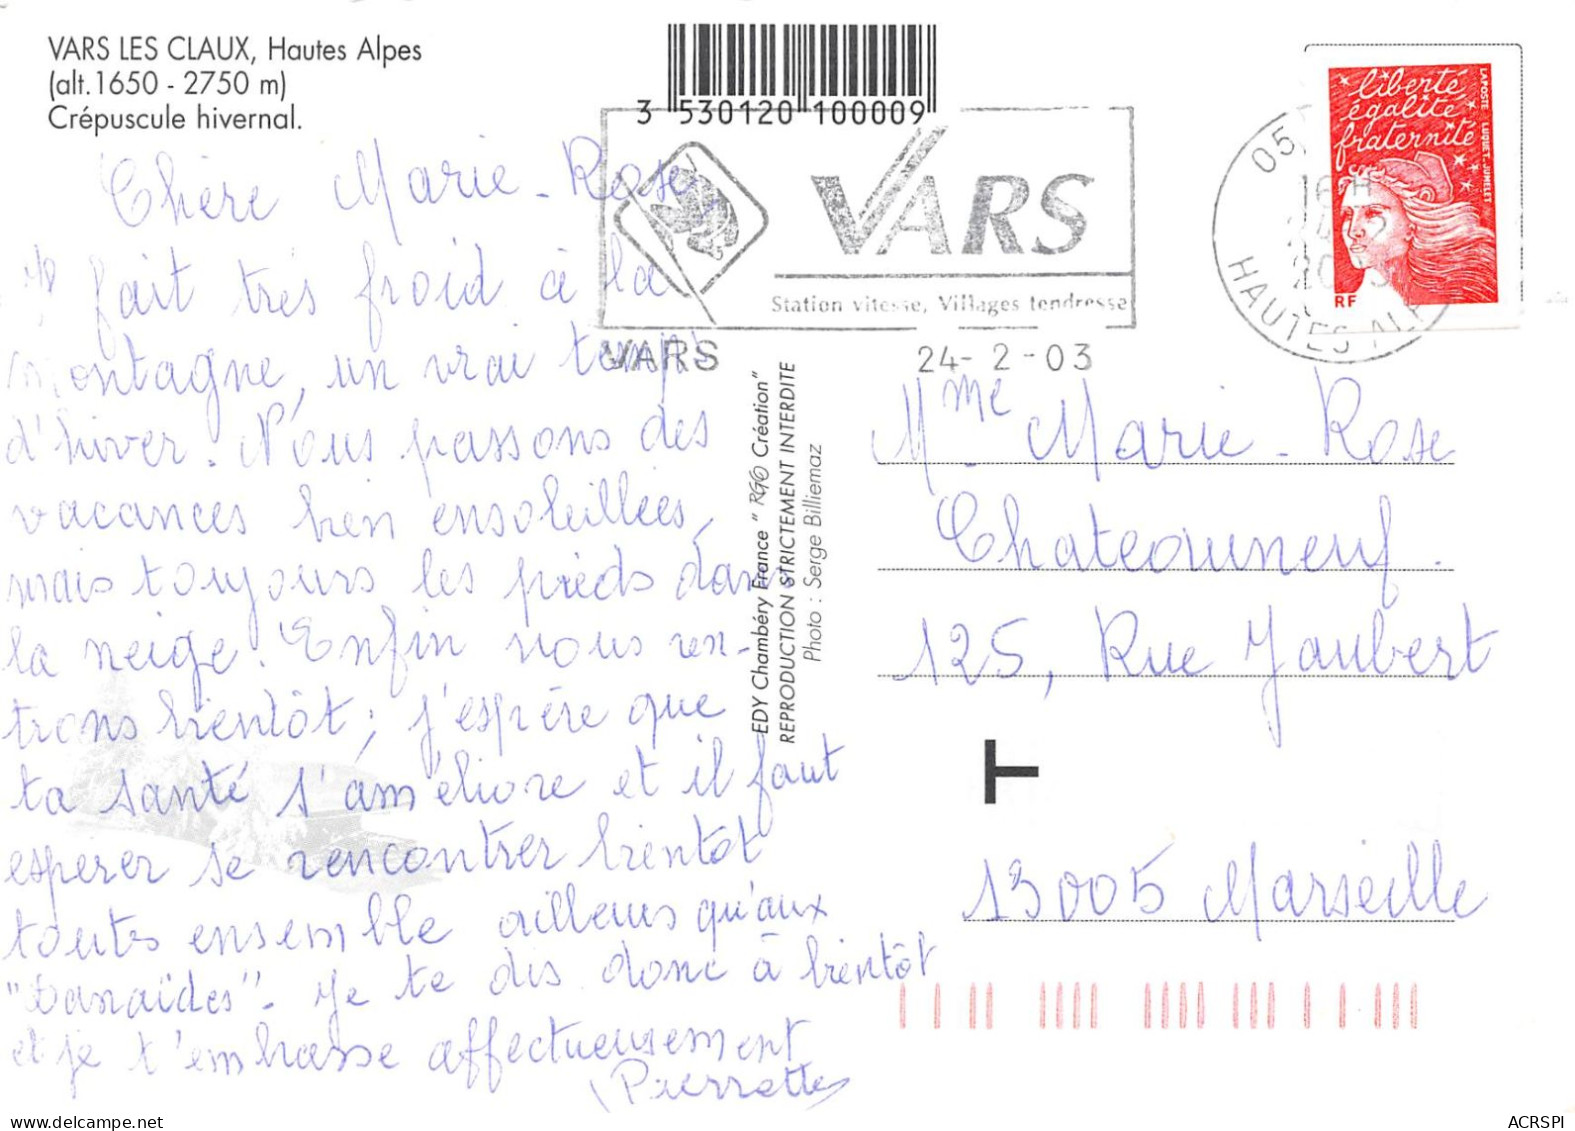 VARS LES CLAUX, Hautes Alpes
(alt.1650 - 2750 m)
Crépuscule hivernal.
3 530120 100009
VARS
Station vitesse, Villages tendresse
VARS
24- 2 -03
05
16H
HAUTES ALP
liberté
égalité
fraternité
LAPOSTE LUQUET.JUMELET
RF
Chère Marie-Rose,
Il fait très froid à la
montagne, un vrai temps
d'hiver. Nous passons des
vacances bien ensoleillées,
mais toujours les pieds dans
la neige! Enfin nous ren-
trons bientôt; j'espère que
ta santé s'améliore et il faut
espérer se rencontrer bientot
toutes ensemble ailleurs qu'aux
"Danaïdes"- Je te dis donc à bientôt
et je t'embrasse affectueusement
Pierrette
EDY Chambéry France " RGO Création"
REPRODUCTION STRICTEMENT INTERDITE
Photo : Serge Billiemaz
Mme Marie-Rose
Chateauneuf.
125, Rue Jaubert
T
13005 Marseille
ACRSPI